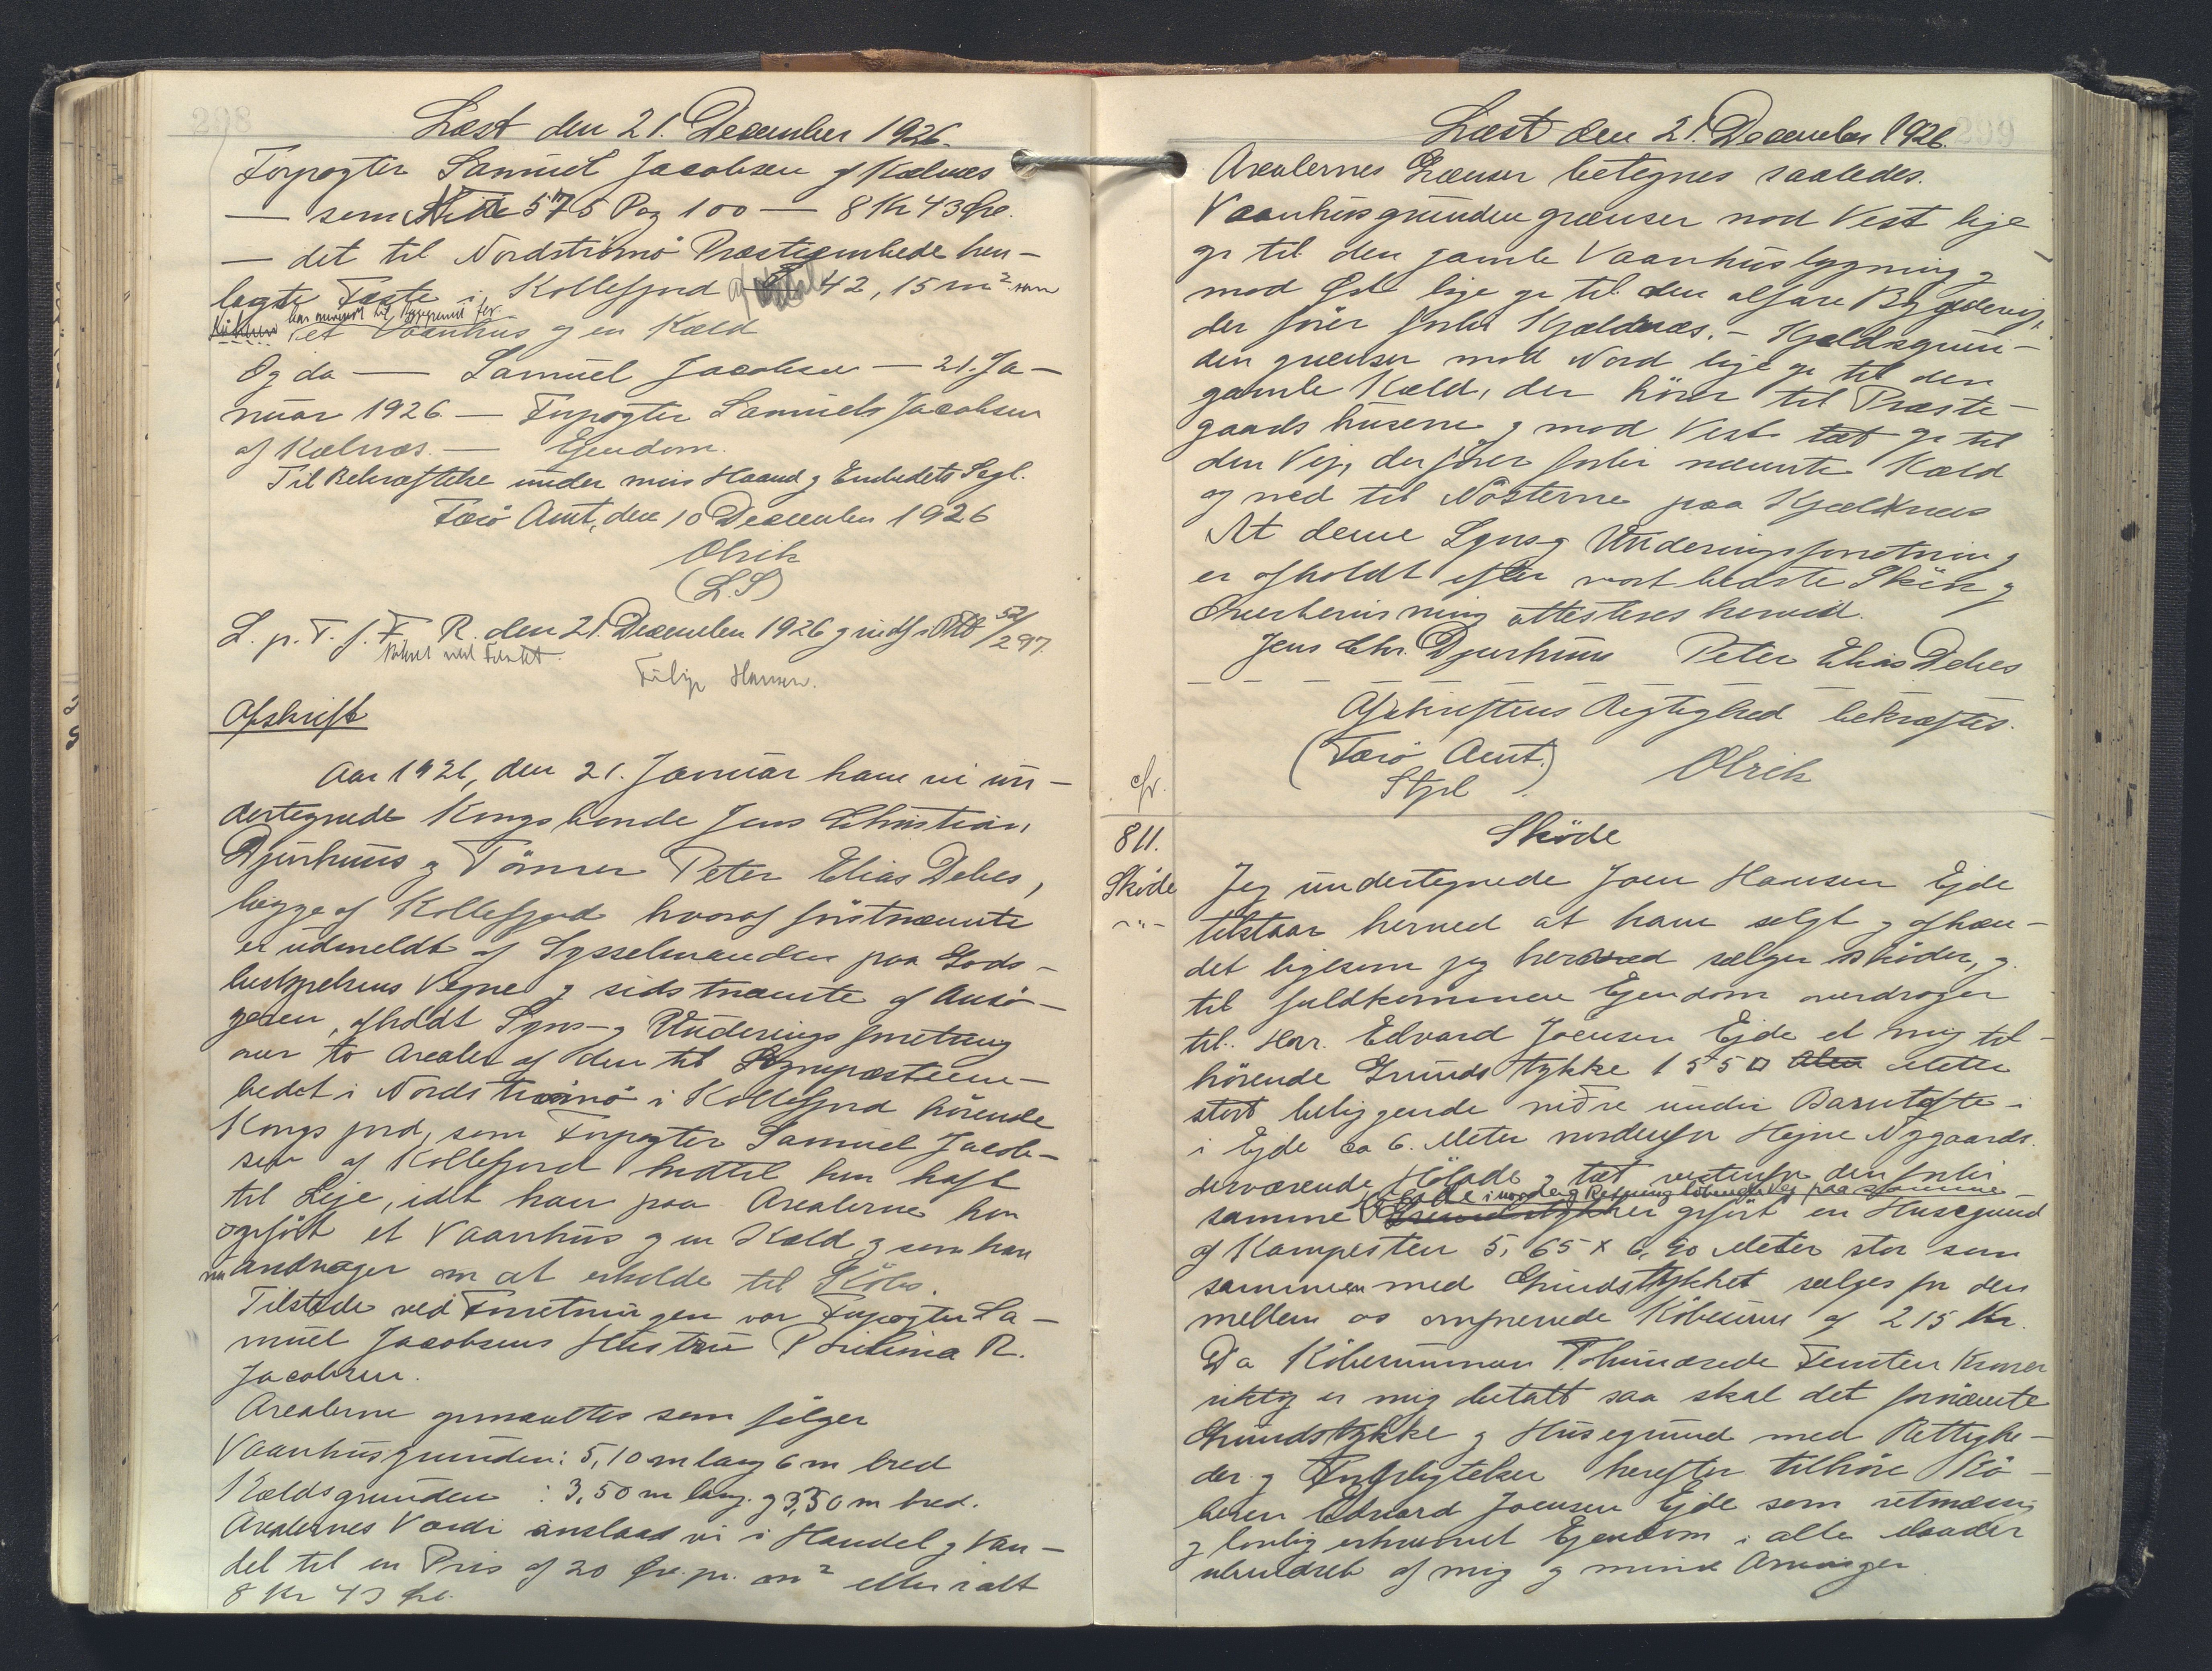 298
Læst den 21. December 1926.
Forpagter Samuel Jacobsen af Kælnæs
— som Nr 575 Pag 100 — 8 Kr 43 Øre.
— det til Nordströmö Præsteembede hen-
lagte Fæste i Kollefjord af 42,15 m² som
han anvendt til Byggegrund for
et Vaanhus og en Kæld
Og da — Samuel Jacobsen — 21. Ja-
nuar 1926 — Forpagter Samuels Jacobsen
af Kælnæs. — Ejendom.
Til Bekræftelse under min Haand og Embedets Segl.
Færö Amt, den 10 December 1926
Olrik
(L.S)
L. p. T. f. F. R. den 21. December 1926 og indf i 52/297.
Filip Hansen.
Afskrift
Aar 1926, den 21. Januar have vi un-
dertegnede Kongsbonde Jens Christian
Djurhuus og Tömrer Peter Elias Debes,
begge af Kollefjord hvoraf förstnævnte
er udmeldt af Sysselmanden paa Gods-
bestyrelsens Vegne og sidstnævnte af Ansö-
geren, afholdt Syns- og Vurderingsforretning
over to Arealer af den til Sognepræsteem-
bedet i Nordströmö i Kollefjord hörende
Kongsjord, som Forpagter Samuel Jacob-
sen af Kollefjord hidtil har haft
til Leje, idet han paa Arealerne har
opfört et Vaanhus og en Kæld og som han
nu andrager om at erholde til Köbs.
Tilstede ved Forretningen var Forpagter Sa-
muel Jacobsens Hustru Poulina R.
Jacobsen.
Arealerne opmaaltes som fölger
Vaanhusgrunden: 5,10 m lang 6 m bred
Kældsgrunden : 3,50 m lang og 3,30 m bred.
Arealernes Værdi anslaas vi i Handel og Van-
del til en Pris af 20 Øre pr. m² eller ialt
8 Kr 43 Øre.
299
Læst den 21. December 1926.
Arealernes Grænser betegnes saaledes.
Vaanhusgrunden grænser mod Vest lige
op til den gamle Vaanhusbygning og
mod Øst lige op til den alfare Bygdevej,
der förer forbi Kjældnæs. - Kjældsgrun-
den grænser mod Nord lige op til den
gamle Kæld, der hörer til Præste-
gaardshusene og mod Vest tæt op til
den Vej, der förer forbi nævnte Kæld
og ned til Nösterne paa Kjældnæs
At denne Syns og Vurderingsforretning
er afholdt efter vort bedste Skön og
Overbevisning attesteres herved.
Jens Chr. Djurhuus Peter Elias Debes
Afskriftens Rigtighed bekræftes.
(Færö Amt.) Olrik
Stpl
cfr.
811.
Sköde
Sköde
Jeg undertegnede Joen Hansen Ejde
tilstaar herved at have solgt og afhæn-
det ligesom jeg herved sælger sköder, og
til fuldkommen Ejendom overdrager
til Hr. Edvard Joensen Ejde et mig til-
hörende Grundstykke 155 □ Alen Meter
stort beliggende niðre undir Barutofte
i Ejde ca 6. Meter nordenfor Hejne Nygaards
derværende Hölade og tæt vestenfor den forbi
samme Hölade i nordlig Retning löbende Vej paa samme
Grundstykke er opfört en Husegrund
af Kampesten 5,65 x 6,90 Meter stor som
sammen med Grundstykket sælges for den
mellem os omforenede Köbesum af 215 Kr.
Da Köbesummen Tohundrede Femten Kroner
riktig er mig betalt saa skal det fornævnte
Grundstykke og Husegrund med Rettighe-
der og Forpligtelser herefter tilhöre Kö-
beren Edvard Joensen Ejde som retmæssig
og lovlig erhvervet Ejendom i alle Maader
ubeværet af mig og mine Arvinger